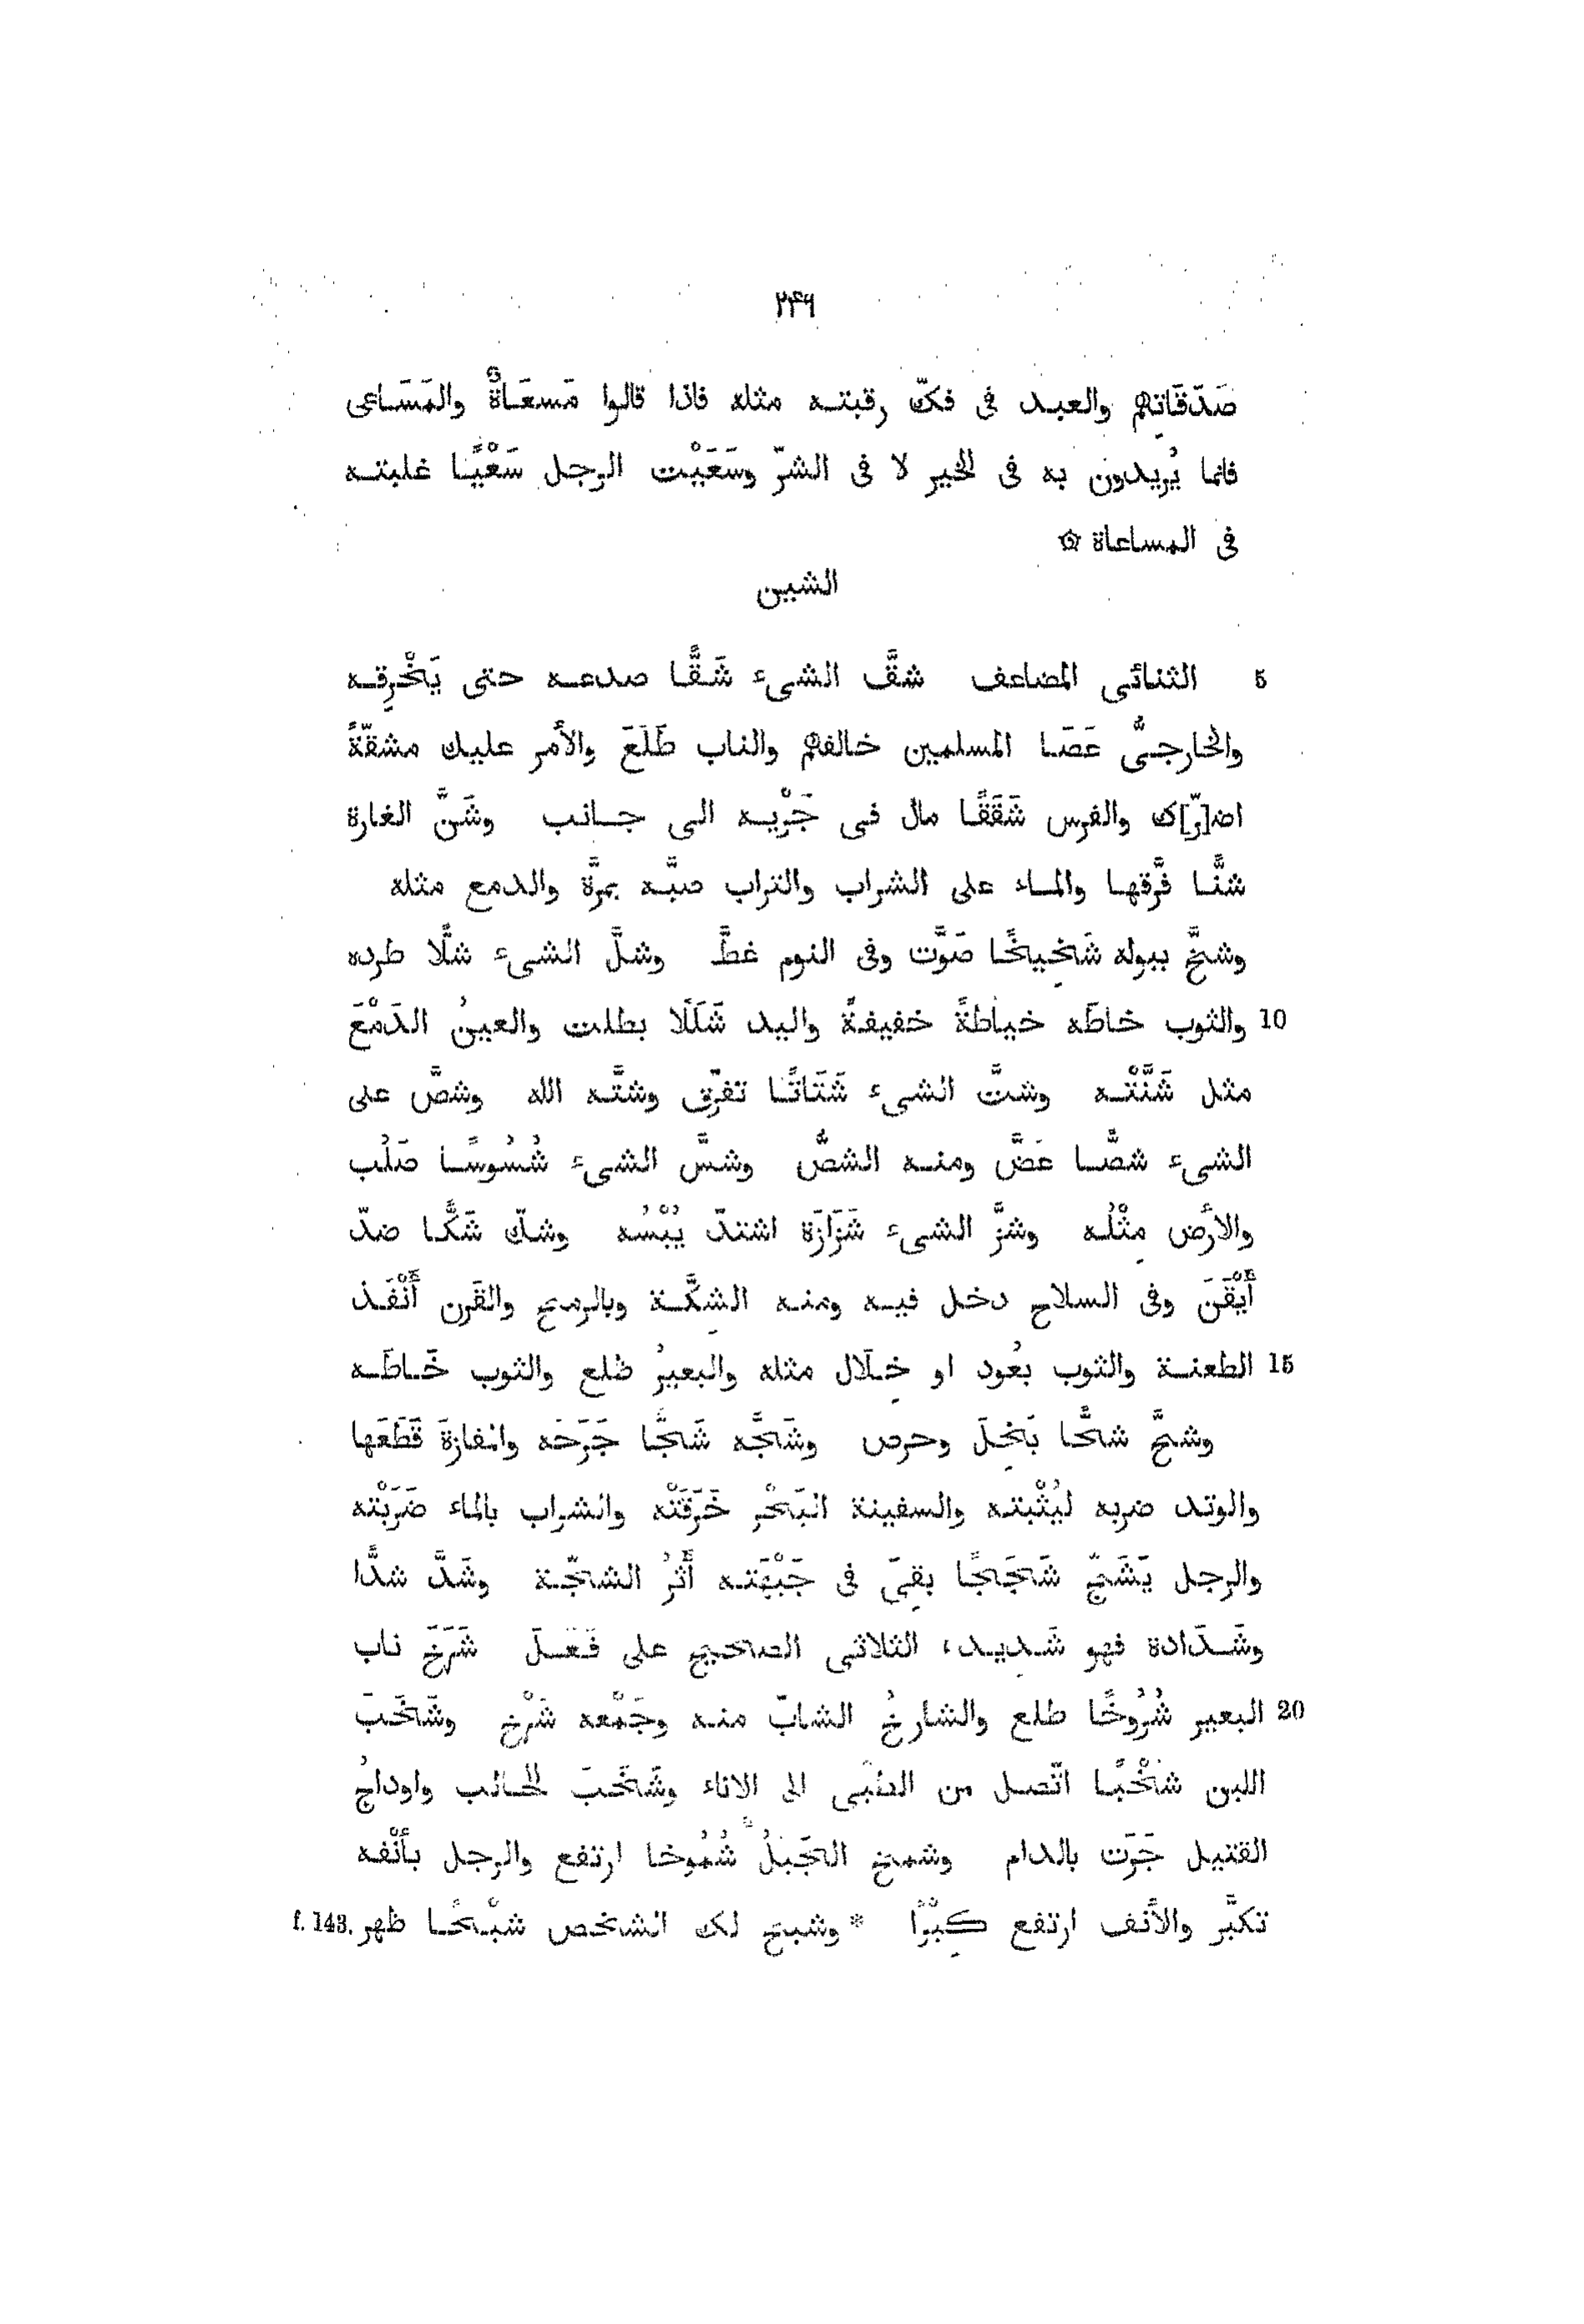 ٢٤٦
صَدَقَاتِهم والعبد فى فكّ رقبته مثله فاذا قالوا مَسعَاةٌ والمَسَاعى
فانما يُريدون به فى الخير لا فى الشرّ وسَعَيْت الرجل سَعْيًا غلبته
فى المساعاة ۞
الشين
5 الثنائى المضاعف شقَّ الشىء شَقًّا صدعه حتى يَخْرِقه
والخارجىُّ عَصَا المسلمين خالفهم والناب طَلَعَ والأمر عليك مشقّةً
اض[رّ]ك والفرس شَقَقًا مال فى جَرْيه الى جانب وشَنَّ الغارة
شنًّا فرَّقها والماء على الشراب والتراب صبَّه بمرَّة والدمع مثله
وشخَّ ببوله شَخِيخًا صَوَّت وفى النوم غطَّ وشلَّ الشىء شلًّا طرده
10 والثوب خاطَه خياطةً خفيفةً واليد شَلَلًا بطلت والعينُ الدَمْعَ
مثل شَنَّتْه وشتَّ الشىء شَتَاتًا تفرّق وشتَّه الله وشصَّ على
الشىء شصًّا عَضَّ ومنه الشصُّ وشسَّ الشىء شُسُوسًا صَلُب
والارُض مِثْلُه وشزَّ الشىء شَزَازَة اشتدّ يُبْسُه وشكّ شَكًّا ضدّ
أَيْقَنَ وفى السلاح دخل فيه ومنه الشِكَّة وبالرمح والقَرن أَنْفَذ
15 الطعنة والثوب بعُود او خِلَال مثله والبعيرُ ظلع والثوب خَاطَه
وشحَّ شحًّا بَخِلَ وحرص وشَجَّه شَجًّا جَرَحَه والمفازةَ قَطَعَها
والوتد ضربه ليُثْبته والسفينة البَحْر خَرَقَتْه والشراب بالماء ضَرَبْته
والرجل يَشَجّ شَجَجًا بقِىَ فى جَبْهَته أَثَرُ الشجّة وشَدَّ شدًّا
وشَدَادة فهو شَدِيد، الثلاثى الصحيح على فَعَلَ شَرَخَ ناب
20 البعير شُرُوخًا طلع والشارخُ الشابّ منه وجَمْعه شَرْخ وشَخَبَ
اللبن شَخْبًا اتّصل من الطُبْى الى الاناء وشَخَبَ الحالب واوداجُ
القتيل جَرَت بالدام وشمخ الجَبلُ شُمُوخا ارتفع والرجل بأَنْفه
تكبَّر والأَنف ارتفع كِبْرًا * وشبح لك الشخص شبْحًا ظهر f. 143.